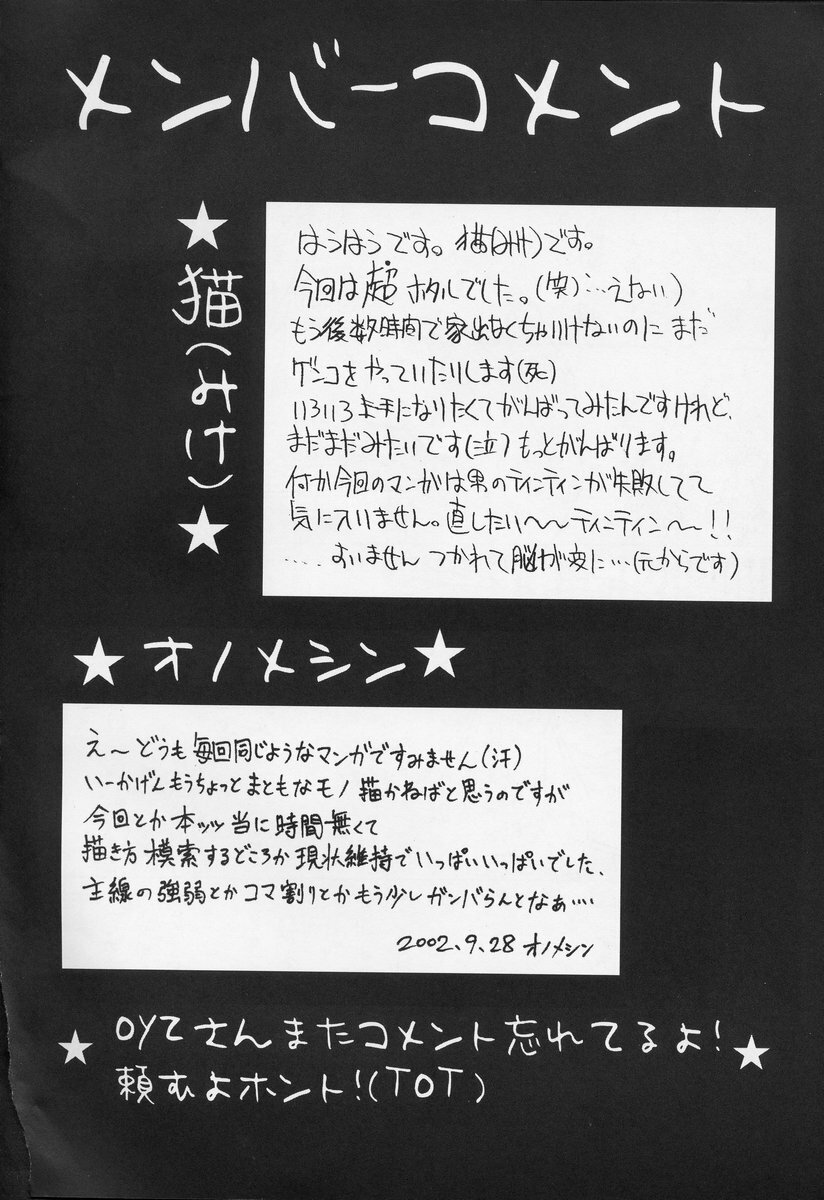 メンバーコメント
★猫(みけ)★
はうはうです。猫(みけ)です。
今回は超ホタルでした。(笑)…えない)
もう後数時間で家出なくちゃいけないのにまだ
ゲンコをやっていたりします(死)
いろいろ上手になりたくてがんばってみたんですけれど、
まだまだみたいです(泣)もっとがんばります。
何か今回のマンガは男のティンティンが失敗してて
気に入いません。直したい〜〜ティンティン〜!!
....すいません つかれて脳が変に…(元からです)
★オノメシン★
え〜どうも毎回同じようなマンガですみません(汗)
いーかげんもうちょっとまともなモノ描かねばと思うのですが
今回とか本ッッ当に時間無くて
描き方模索するどころか現状維持でいっぱいいっぱいでした、
主線の強弱とかコマ割りとかもう少しガンバらんとなぁ….
2002.9.28 オノメシン
★OYZさんまたコメント忘れてるよ!★
頼むよホント!(TOT)